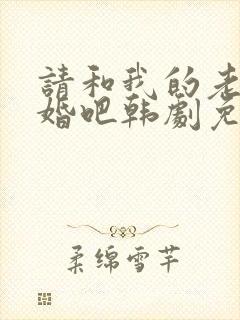 請和我的老
婚吧韩劇免
柔绵雪芊